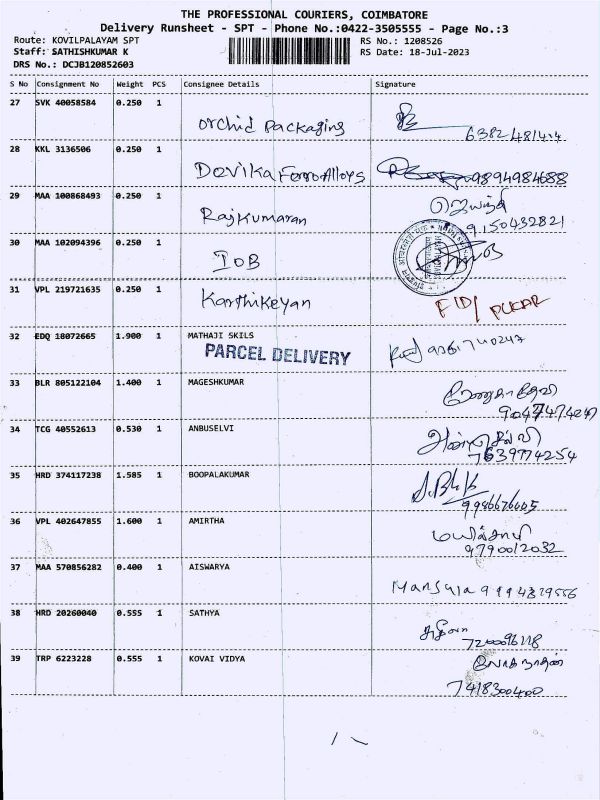 THE PROFESSIONAL COURIERS, COIMBATORE
Delivery Runsheet - SPT - Phone No.:0422-3505555 - Page No.:3
Route: KOVILPALAYAM SPT RS No.: 1208526
Staff: SATHISHKUMAR K RS Date: 18-Jul-2023
DRS No.: DCJB120852603
S No Consignment No Weight PCS Consignee Details Signature
27 SVK 40058584 0.250 1
Orchid Packaging
28 KKL 3136506 0.250 1
Devika Ferro Alloys 9894984688
29 MAA 100868493 0.250 1
Rajkumaran 9150432821
30 MAA 102094396 0.250 1
IOB
31 VPL 219721635 0.250 1
Karthikeyan
32 EDQ 18072665 1.900 1 MATHAJI SKILS
PARCEL DELIVERY
33 BLR 805122104 1.400 1 MAGESHKUMAR
34 TCG 40552613 0.530 1 ANBUSELVI
7639774254
35 HRD 374117238 1.585 1 BOOPALAKUMAR
36 VPL 402647855 1.600 1 AMIRTHA
9790012032
37 MAA 570856282 0.400 1 AISWARYA
38 HRD 20260040 0.555 1 SATHYA
39 TRP 6223228 0.555 1 KOVAI VIDYA
7418300400